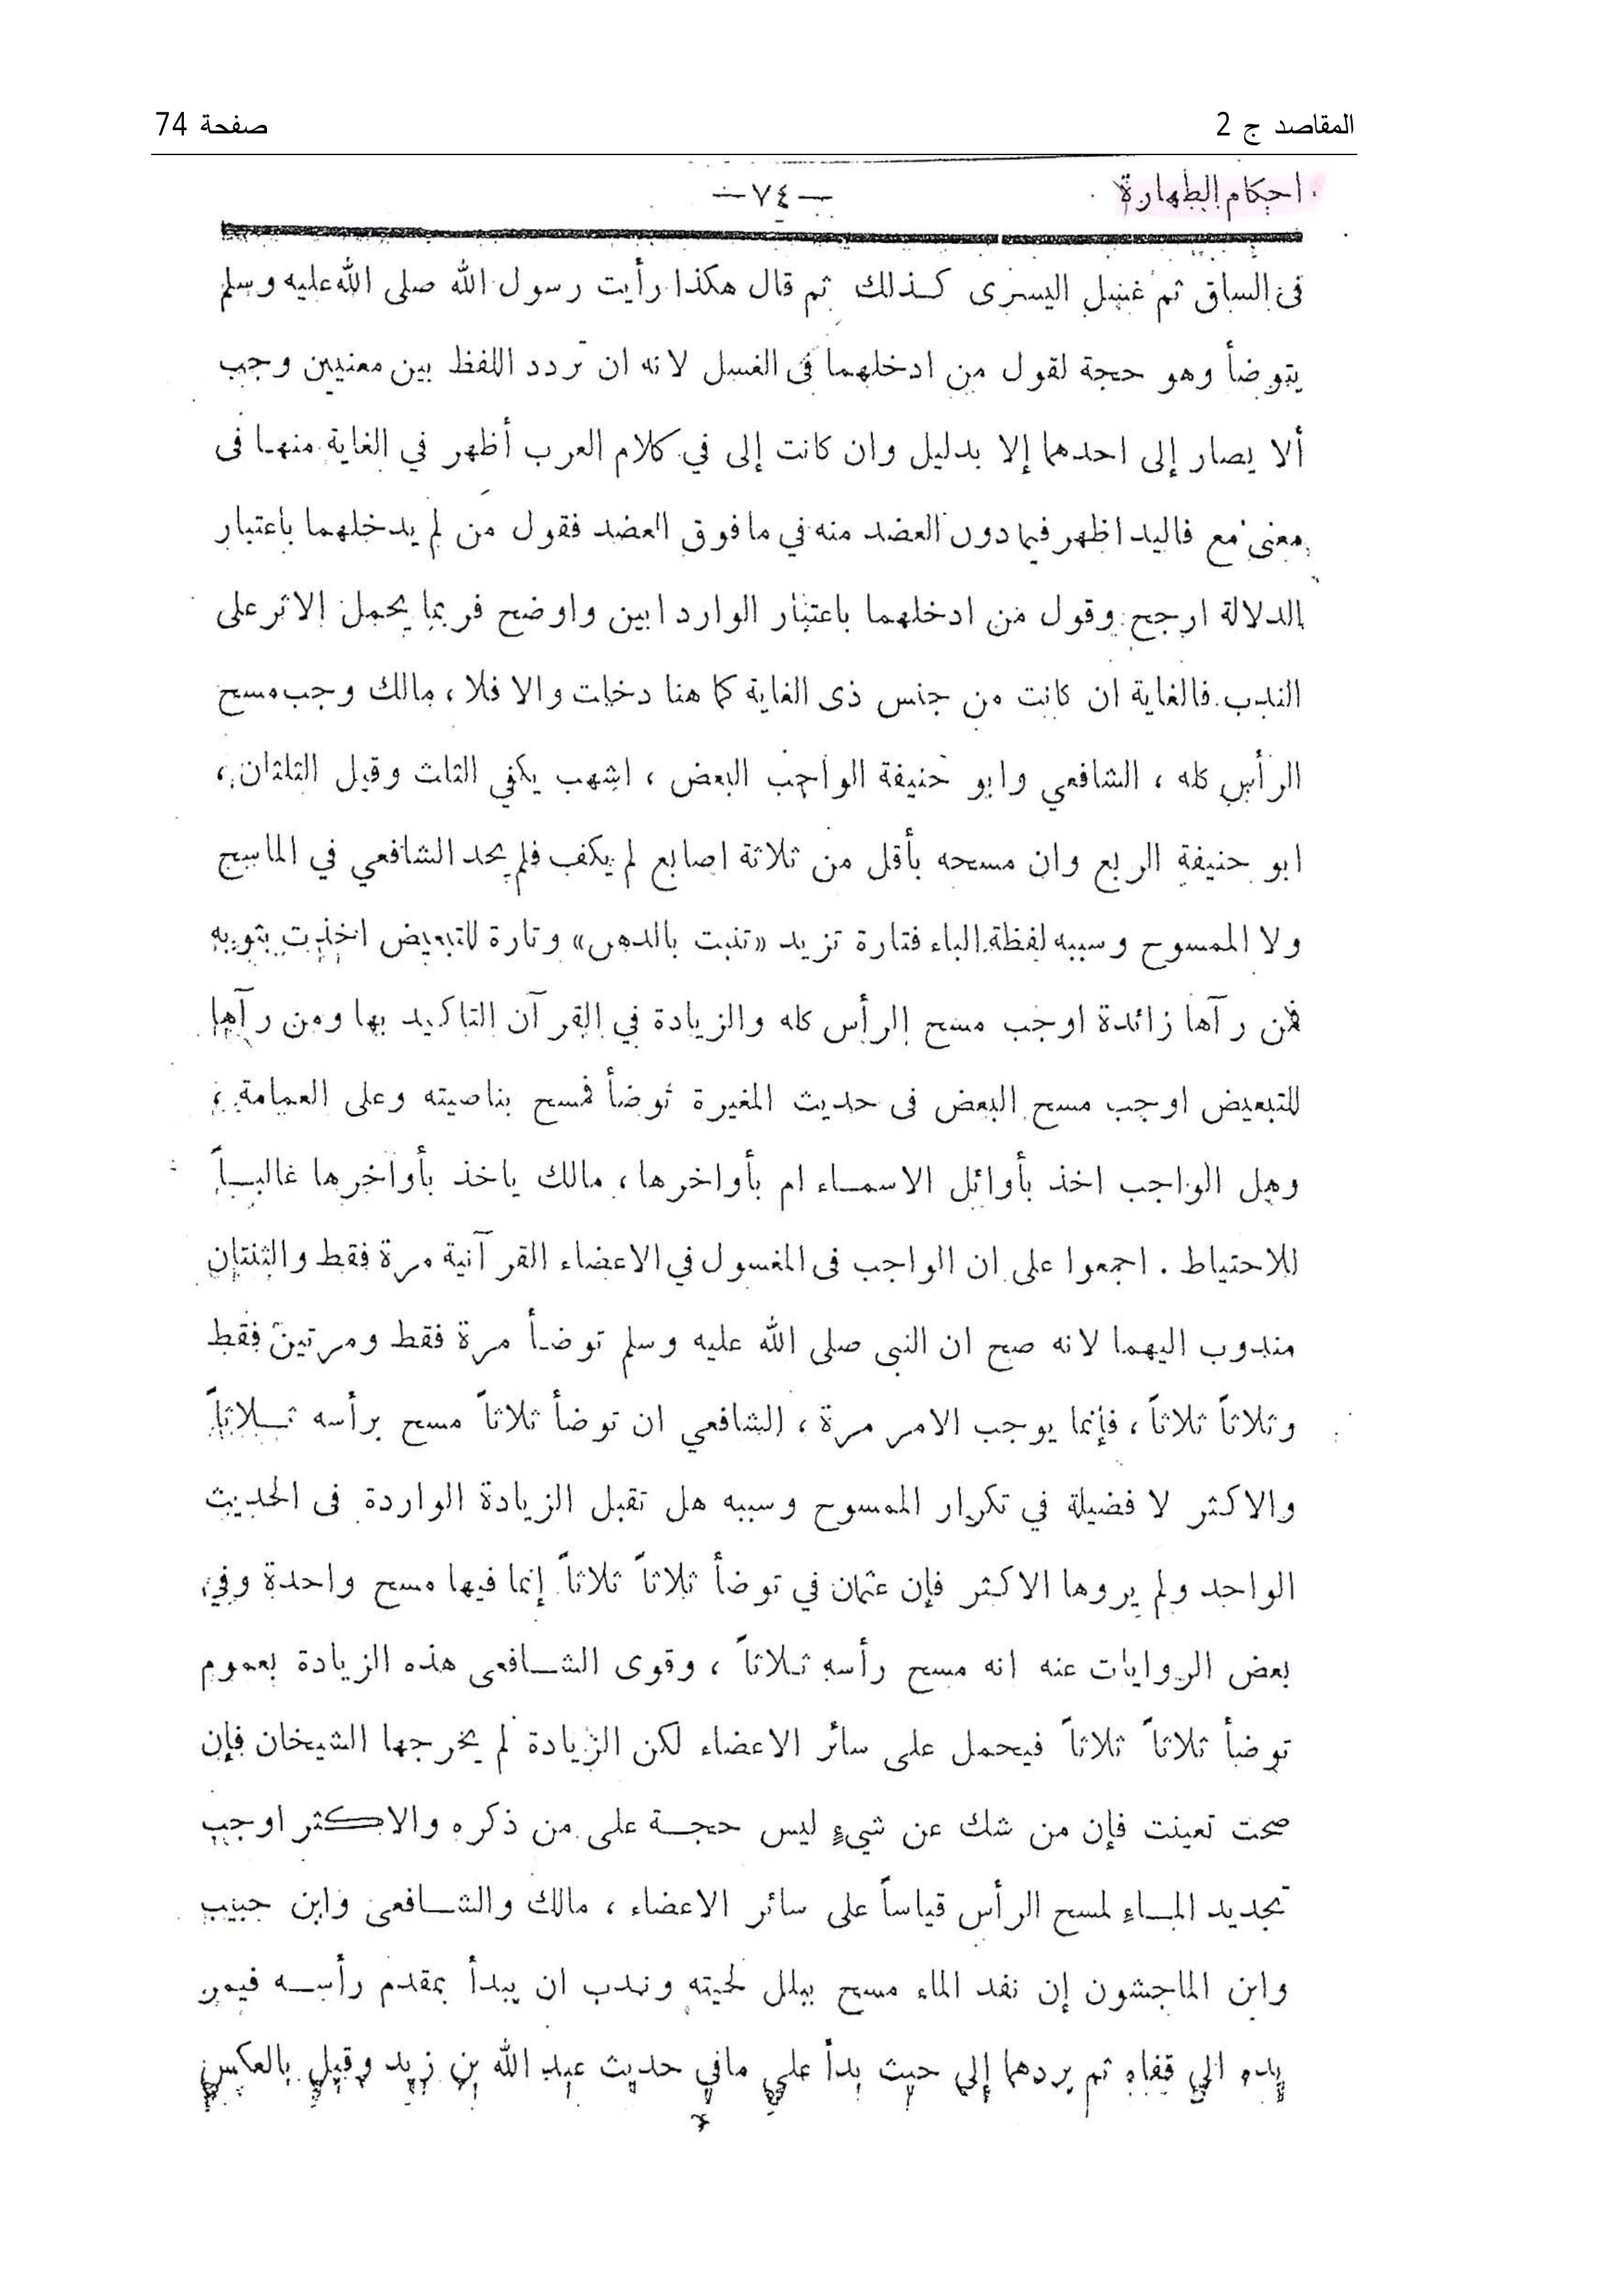 المقاصد ج 2 صفحة 74
احكام الطهارة —٧٤—
فى الساق ثم غسل اليسرى كذلك ثم قال هكذا رأيت رسول الله صلى الله عليه وسلم
يتوضأ وهو حجة لقول من ادخلهما فى الغسل لانه ان تردد اللفظ بين معنيين وجب
ألا يصار إلى احدهما إلا بدليل وان كانت إلى في كلام العرب أظهر في الغاية منها فى
معنى مع فاليد اظهر فيما دون العضد منه في ما فوق العضد فقول من لم يدخلهما باعتبار
الدلالة ارجح وقول من ادخلهما باعتبار الوارد ابين واوضح فربما يحمل الاثر على
الندب فالغاية ان كانت من جنس ذى الغاية كما هنا دخلت والا فلا ، مالك وجب مسح
الرأس كله ، الشافعي وابو حنيفة الواجب البعض ، اشهب يكفي الثلث وقيل الثلثان ،
ابو حنيفة الربع وان مسحه بأقل من ثلاثة اصابع لم يكف فلم يحد الشافعي في الماسح
ولا الممسوح وسببه لفظة الباء فتارة تزيد «تنبت بالدهن» وتارة للتبعيض اخذت بثوبه
فمن رآها زائدة اوجب مسح الرأس كله والزيادة في القرآن التاكيد بها ومن رآها
للتبعيض اوجب مسح البعض فى حديث المغيرة توضأ فمسح بناصيته وعلى العمامة ،
وهل الواجب اخذ بأوائل الاسماء ام بأواخرها ، مالك ياخذ بأواخرها غالباً
للاحتياط . اجمعوا على ان الواجب فى المغسول في الاعضاء القرآنية مرة فقط والثنتان
مندوب اليهما لانه صح ان النبى صلى الله عليه وسلم توضأ مرة فقط ومرتين فقط
وثلاثاً ثلاثاً ، فإنما يوجب الامر مرة ، الشافعي ان توضأ ثلاثاً مسح برأسه ثلاثاً
والاكثر لا فضيلة في تكرار الممسوح وسببه هل تقبل الزيادة الواردة فى الحديث
الواحد ولم يروها الاكثر فإن عثمان في توضأ ثلاثاً ثلاثاً إنما فيها مسح واحدة وفي
بعض الروايات عنه انه مسح رأسه ثلاثاً ، وقوى الشافعى هذه الزيادة بعموم
توضأ ثلاثاً ثلاثاً فيحمل على سائر الاعضاء لكن الزيادة لم يخرجها الشيخان فإن
صحت تعينت فإن من شك عن شيءٍ ليس حجة على من ذكره والاكثر اوجب
تجديد الماءِ لمسح الرأس قياساً على سائر الاعضاء ، مالك والشافعى وابن حبيب
وابن الماجشون إن نفد الماء مسح ببلل لحيته وندب ان يبدأ بمقدم رأسه فيمر
يده الى قفاه ثم يردهما إلى حيث بدأ على مافي حديث عبد الله بن زيد وقيل بالعكس